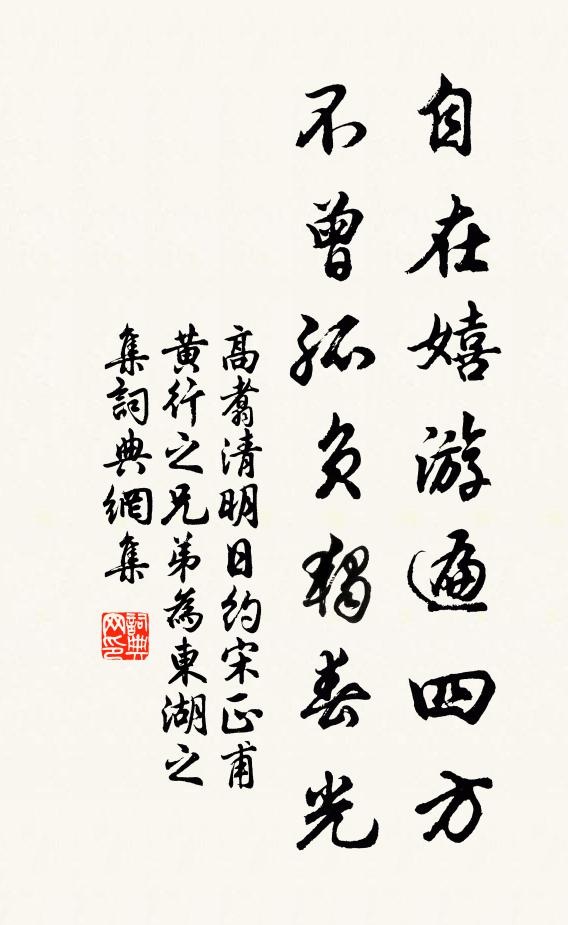 自在嬉游遍四方
不曾孤负独春光
高翥清明日約宋正甫
黄行之兄弟為東湖之
集詞典網集
詞典网印